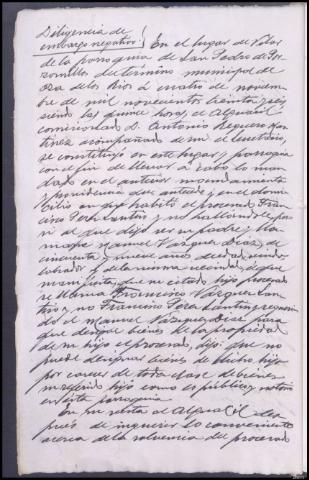 Diligencia de
embargo negativo } En el lugar de Vilar
de la parroquia de San Pedro de Por
zomillos del término municipal de
Oza de los Rios a cuatro de noviem
bre de mil novecientos treinta y seis
siendo las quince horas, el Alguacil
comisionado D. Antonio Regueiro Mar
tinez acompañado de mi el Secretario,
se constituyó en este lugar y parroquia
con el fin de llevar á cabo lo man
dado en el anterior mandamiento
y providencia que antecede y en el domi
cilio en que habita el procesado Fran
cisco Pera Santos y no hallandole pa
ró al que dijo ser su padre y lla
marse Manuel Vázquez Diaz, de
cincuenta y nueve años de edad, viudo
labrador y de la misma vecindad, el que
manifiesta que su citado hijo procesado
se llama Francisco Vázquez San
tos y no Francisco Pera Santos, requirien
do al Manuel Vázquez Diaz para
que designe bienes de la propiedad
de su hijo el procesado, dijo que no
puede designar bienes de dicho hijo
por carecer de toda clase de bienes
su referido hijo como es público y notorio
en esta parroquia.
En su vista el Alguacil des
pués de inquirir lo conveniente
acerca de la solvencia del procesado